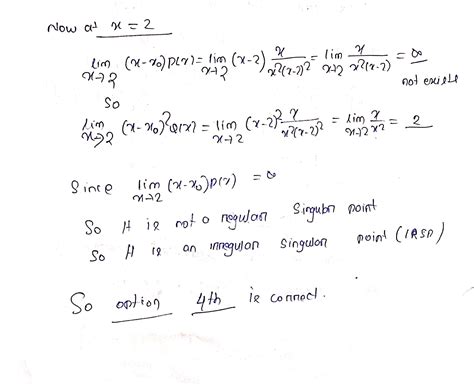 Now at x = 2
lim x→2 (x-x₀) P(x) = lim x→2 (x-2) x/x²(x-2)² = lim x→2 x/x²(x-2) = ∞
not exists
So
lim x→2 (x-x₀)² Q(x) = lim x→2 (x-2)² x/x²(x-2)² = lim x→2 x/x² = 2
Since lim x→2 (x-x₀) P(x) = ∞
So It is not a regular Singular point
So It is an irregular Singular point (IRSP)
So option 4th is correct.